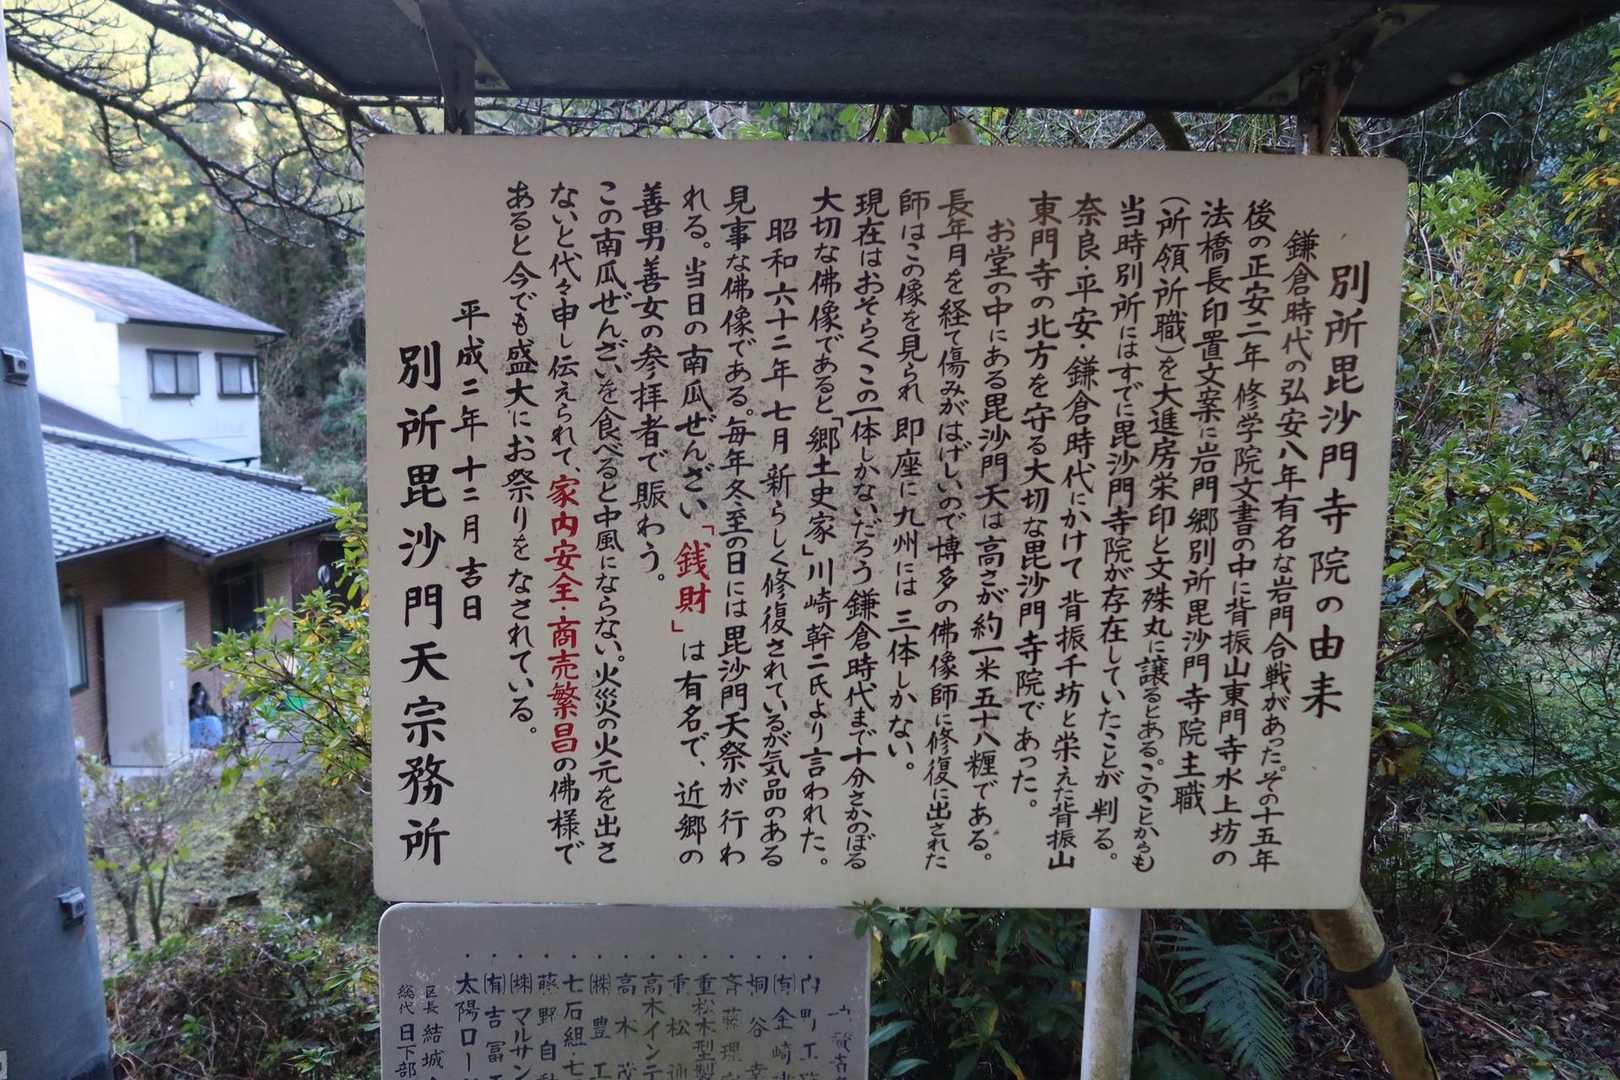 別所毘沙門寺院の由来
鎌倉時代の弘安八年有名な岩門合戦があった。その十五年
後の正安二年 修学院文書の中に背振山東門寺水上坊の
法橋長印置文案に岩門郷別所毘沙門寺院主職
(所領所職)を大進房栄印と文殊丸に譲るとある。このことからも
当時別所にはすでに毘沙門寺院が存在していたことが判る。
奈良・平安・鎌倉時代にかけて背振千坊と栄えた背振山
東門寺の北方を守る大切な毘沙門寺院であった。
お堂の中にある毘沙門天は高さが約一米五十八糎である。
長年月を経て傷みがはげしいので博多の佛像師に修復に出された
師はこの像を見られ 即座に九州には 三体しかない。
現在はおそらくこの一体しかないだろう鎌倉時代まで十分さかのぼる
大切な佛像であると「郷土史家」川崎幹二氏より言われた。
昭和六十二年七月新らしく修復されているが気品のある
見事な佛像である。毎年冬至の日には毘沙門天祭が行わ
れる。当日の南瓜ぜんざい「銭財」は有名で、近郷の
善男善女の参拝者で賑わう。
この南瓜ぜんざいを食べると中風にならない。火災の火元を出さ
ないと代々申し伝えられて、家内安全・商売繁昌の佛様で
あると今でも盛大にお祭りをなされている。
平成二年十二月吉日
別所毘沙門天宗務所
内町工
(有)金崎
桐谷
斉藤理
重松木型製
重松
高木インテ
高木茂
(株)豊工
七石組・七
藤野自動
(株)マルサン
(有)吉冨工
太陽ロー
区長 結城
総代 日下部